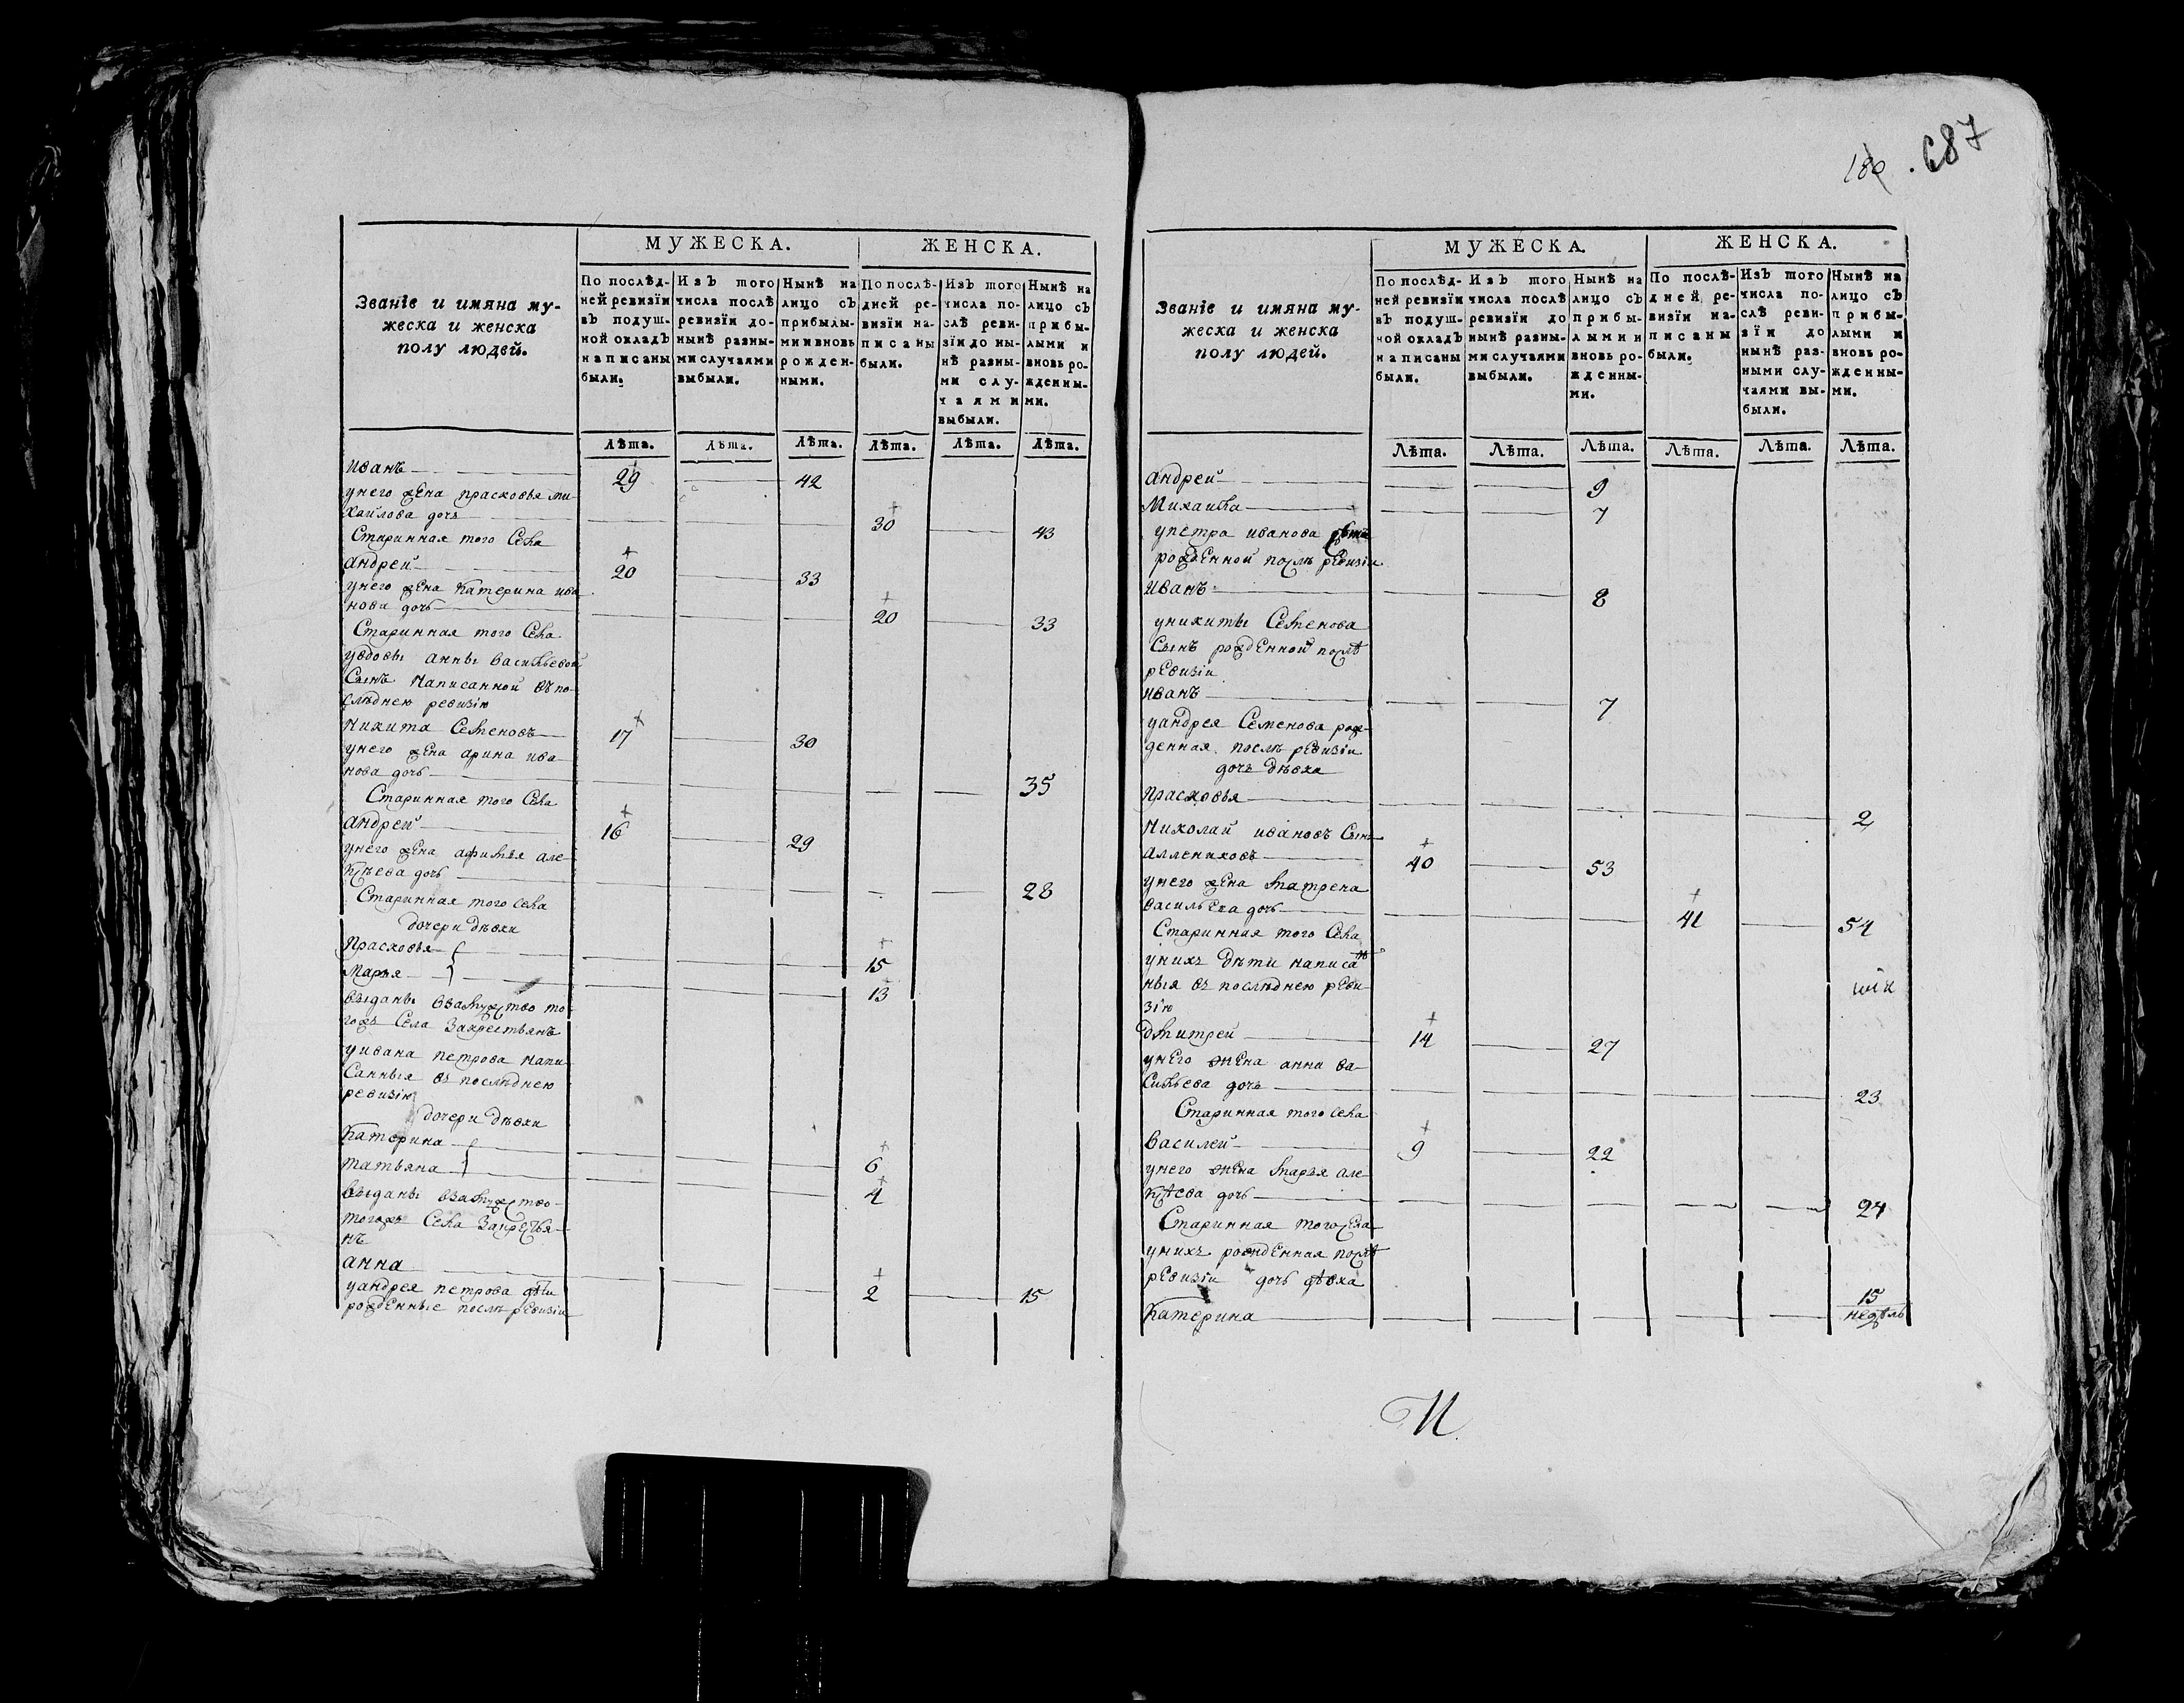 180 . 687
МУЖЕСКА. ЖЕНСКА.
Званїе и имяна му-
жеска и женска
полу людей.
По послѣд-
ней ревизїи
въ подуш-
ной окладъ
написаны
были.
Изъ того
числа послѣ
ревизїи до-
нынѣ разны-
ми случаями
выбыли.
Нынѣ на
лицо съ
прибылы-
ми и вновь
рожден-
ными.
По послѣ-
дней ре-
визїи на-
писаны
были.
Изъ того
числа по-
слѣ реви-
зїи до ны-
нѣ разны-
ми слу-
чаями
выбыли.
Нынѣ на
лицо съ
прибы-
лыми и
вновь ро-
жденны-
ми.
Лѣта. Лѣта. Лѣта. Лѣта. Лѣта. Лѣта.
Иванъ 29 42
унего жена прасковья ми-
хайлова дочь 30 43
Старинная того села
Андрей 20 33
унего жена катерина ива
нова дочь 20 33
Старинная того села
увдовы анны васильевой
Сынъ написанной въ по-
слѣднею ревизїю
Никита Семеновъ 17 30
унего жена арина ива-
нова дочь 35
Старинная того села
Андрей 16 29
унего жена афимья але-
ксѣева дочь 28
Старинная того села
дочери дѣвки
Прасковья 15
Марья 13
выданы взамужство то-
гожъ Села Закрестьянъ
уивана петрова напи-
санныя въ послѣднею
ревизїю
дочери дѣвки
Катерина 6
татьяна 4
выданы взамужство
тогожъ села Закрестья-
нъ
анна 2 15
уандрея петрова дѣти
рожденные послѣ ревизїи
МУЖЕСКА. ЖЕНСКА.
Званїе и имяна му-
жеска и женска
полу людей.
По послѣд-
ней ревизїи
въ подуш-
ной окладъ
написаны
были.
Изъ того
числа послѣ
ревизїи до
нынѣ разны-
ми случаями
выбыли.
Нынѣ на
лицо съ
прибы-
лыми и
вновь ро-
жденны-
ми.
По послѣ-
дней ре-
визїи на-
писаны
были.
Изъ того
числа по-
слѣ реви-
зїи до
нынѣ раз-
ными слу-
чаями вы-
были.
Нынѣ на
лицо съ
прибы-
лыми и
вновь ро-
жденны-
ми.
Лѣта. Лѣта. Лѣта. Лѣта. Лѣта. Лѣта.
Андрей 9
Михайла 7
упетра иванова
рожденной послѣ ревизїи
Иванъ 8
уникиты Семенова
Сынъ рожденной послѣ
ревизїи
иванъ 7
уандрея Семенова рож-
денная послѣ ревизїи
дочь дѣвка
Прасковья 2
Николай ивановъ Сынъ
40 53
унего жена матрена
васильева дочь 41 54
Старинная того Села
унихъ дѣти написа
ныя въ послѣднею реви-
зїю
дмитрей 14 27
унего жена анна ва-
сильева дочь 23
Старинная того села
василей 9 22
унего жена марья але-
ксѣева дочь 24
Старинная того села
унихъ рожденная послѣ
ревизїи дочь дѣвка
Катерина 15 недѣль